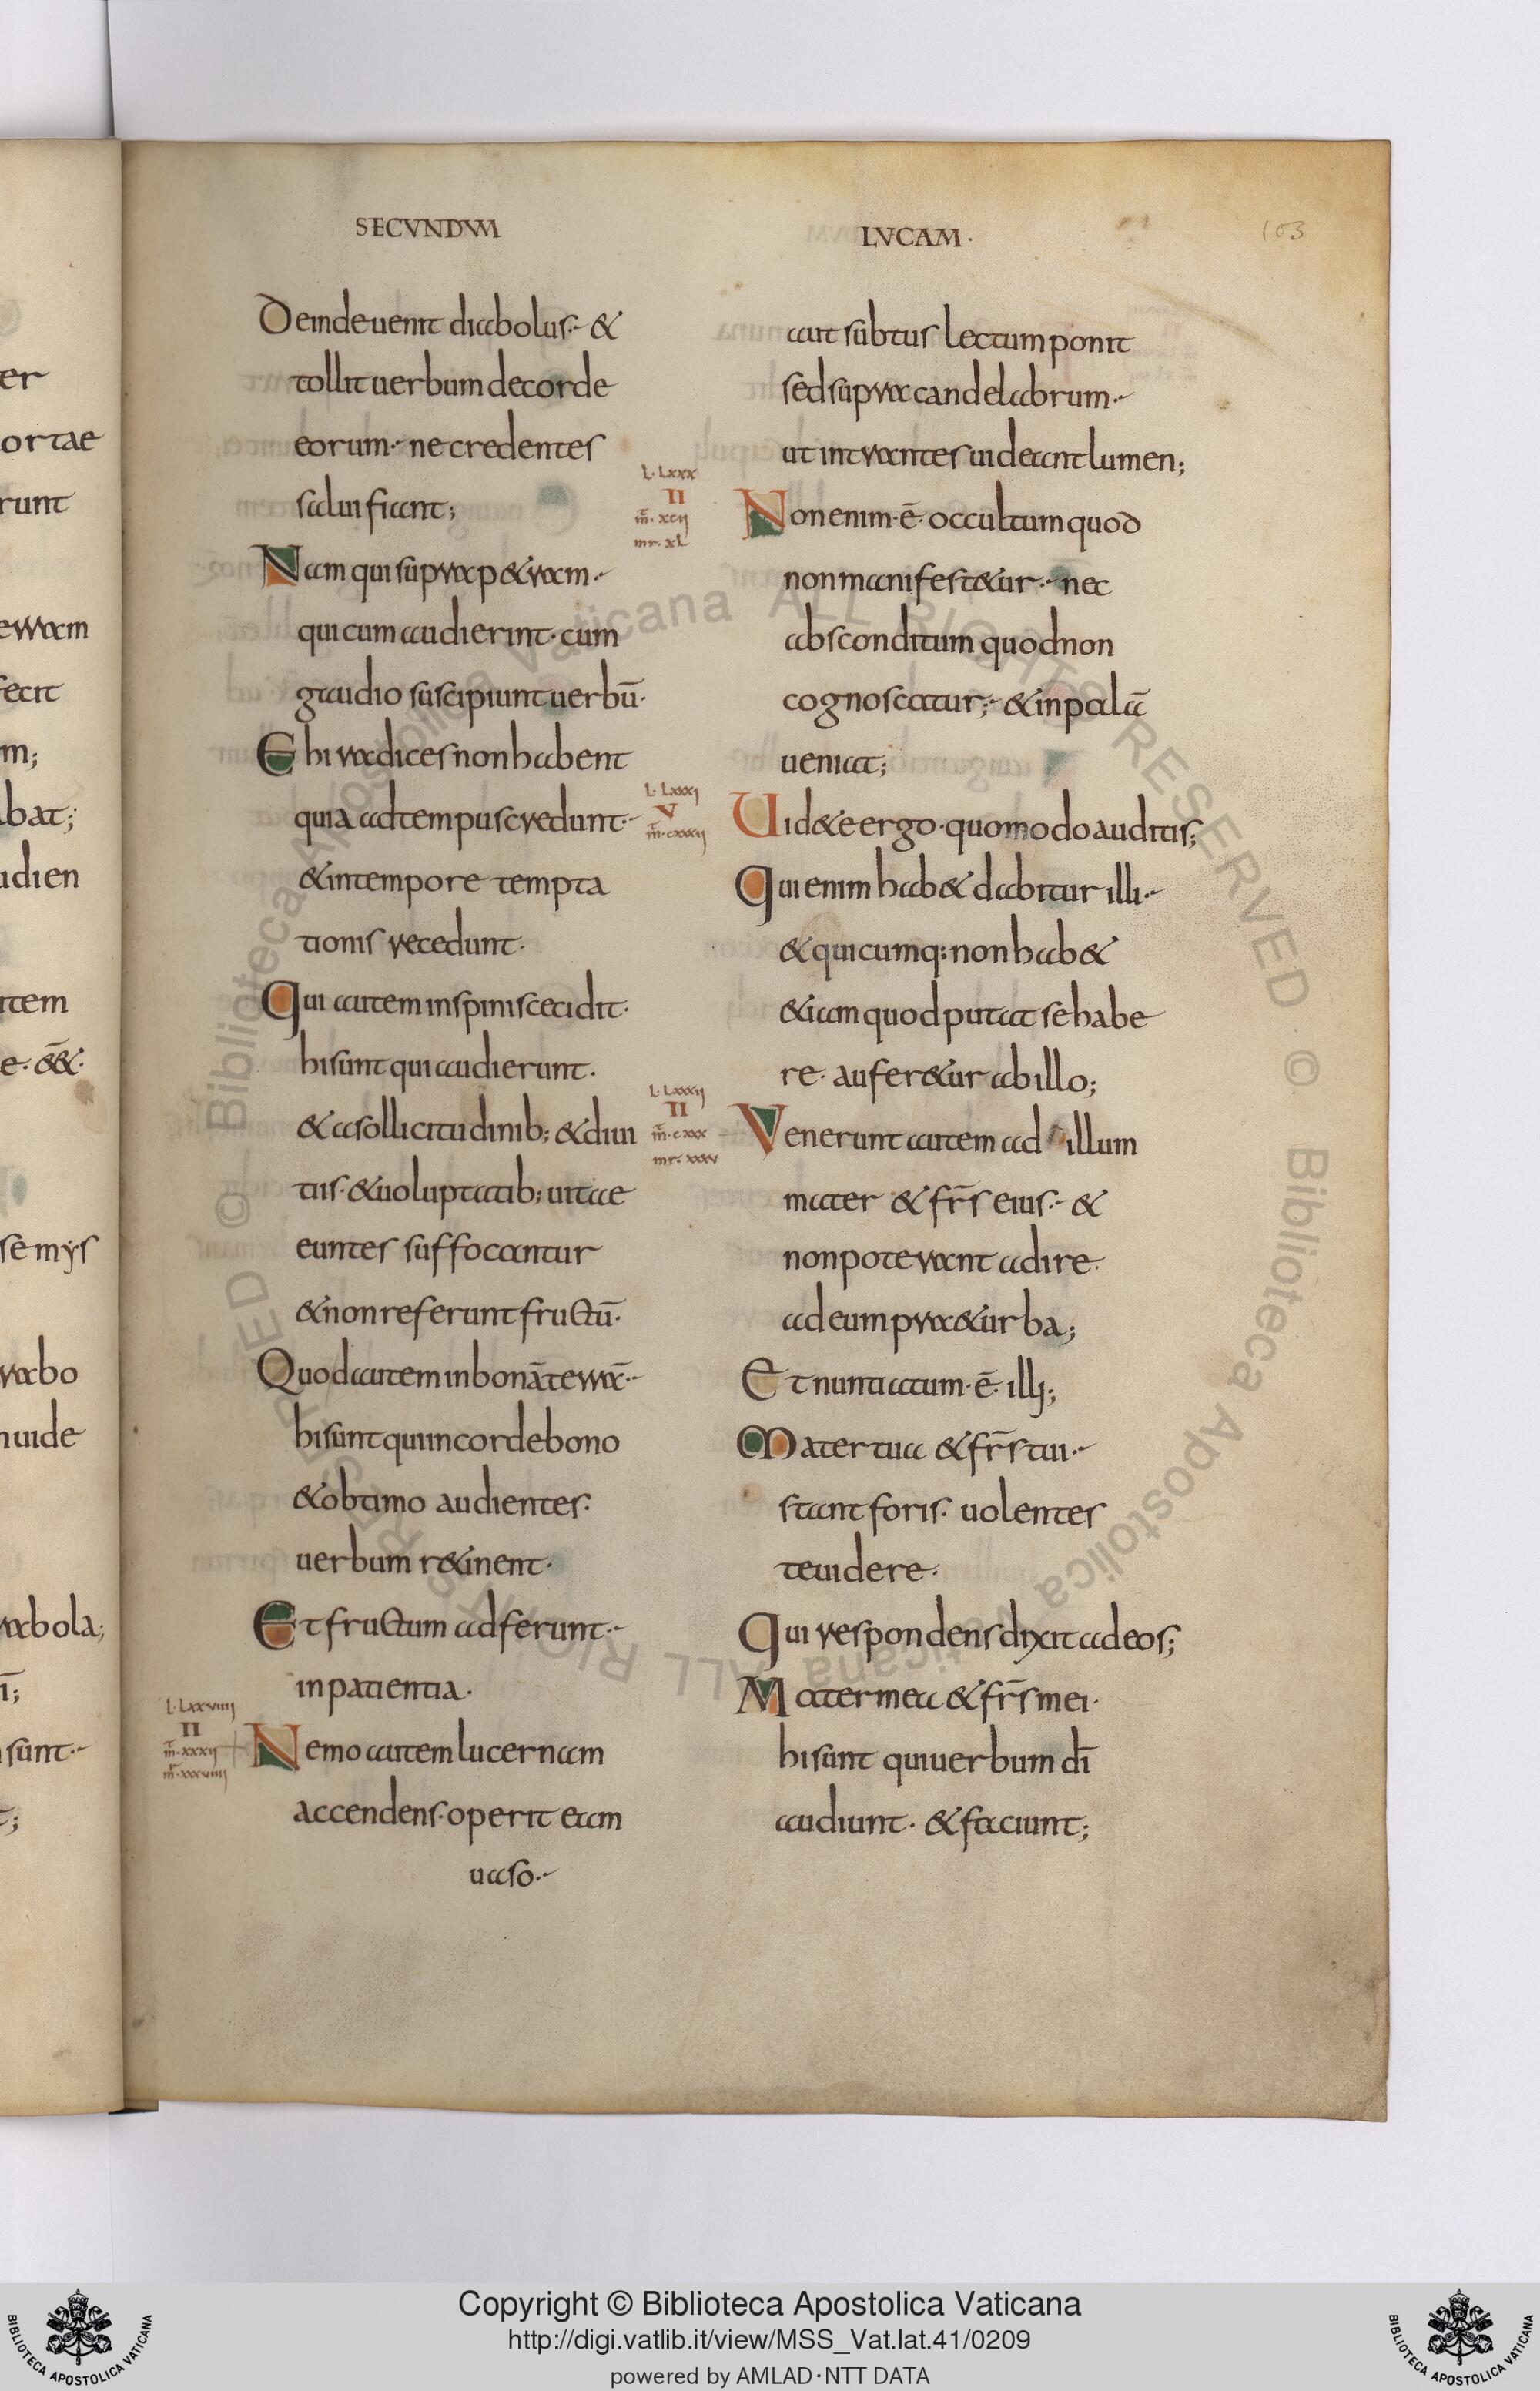 SECVNDVM
LVCAM·
103
Deinde uenit diabolus· &
tollit uerbum de corde
eorum· ne credentes
salui fiant;
Nam qui sup ra p&ram·
qui cum audierint· cum
gaudio suscipiunt uerbū·
E hi radices non habent
quia ad tempus credunt·
& in tempore tempta
tionis recedunt·
Qui autem in spinis cecidit·
hi sunt qui audierunt·
& a sollicitudinib; & diui
tiis· & uoluptatib; uitae
euntes suffocantur
& non referunt fructū·
Quod autem in bonā terrā·
hi sunt qui in corde bono
& obtimo audientes·
uerbum r&inent·
Et fructum adferunt·
in patientia·
L·Lxxuiiii
II
m̄·xxxij
m̄·xxxuiiii
Nemo autem lucernam
accendens· operit eam
uaso·
aut subtus lectum ponit
sed supra candelabrum·
ut intrantes uideant lumen;
L·Lxxx
II
m̄·xcij
mr·xL
Non enim· ē· occultum quod
non manifest&ur· nec
absconditum quod non
cognoscatur; & in palā
ueniat;
L·Lxxxj
V
m̄·cxxxij
Uid&e ergo· quomodo auditis;
Qui enim hab& dabitur illi·
& quicumq; non hab&
& iam quod putat se habe
re· aufer&ur ab illo;
L·Lxxxij
II
m̄·cxxx
mr·xxxv
Venerunt autem ad illum
mater & fr̄s eius· &
non poterant adire·
ad eum prae&urba;
Et nuntiatum· ē· illi;
Mater tua & fr̄s tui·
stant foris· uolentes
te uidere·
Qui respondens dixit ad eos;
Mater mea & fr̄s mei·
hi sunt qui uerbum dī
audiunt· & faciunt;
Copyright © Biblioteca Apostolica Vaticana
http://digi.vatlib.it/view/MSS_Vat.lat.41/0209
powered by AMLAD·NTT DATA